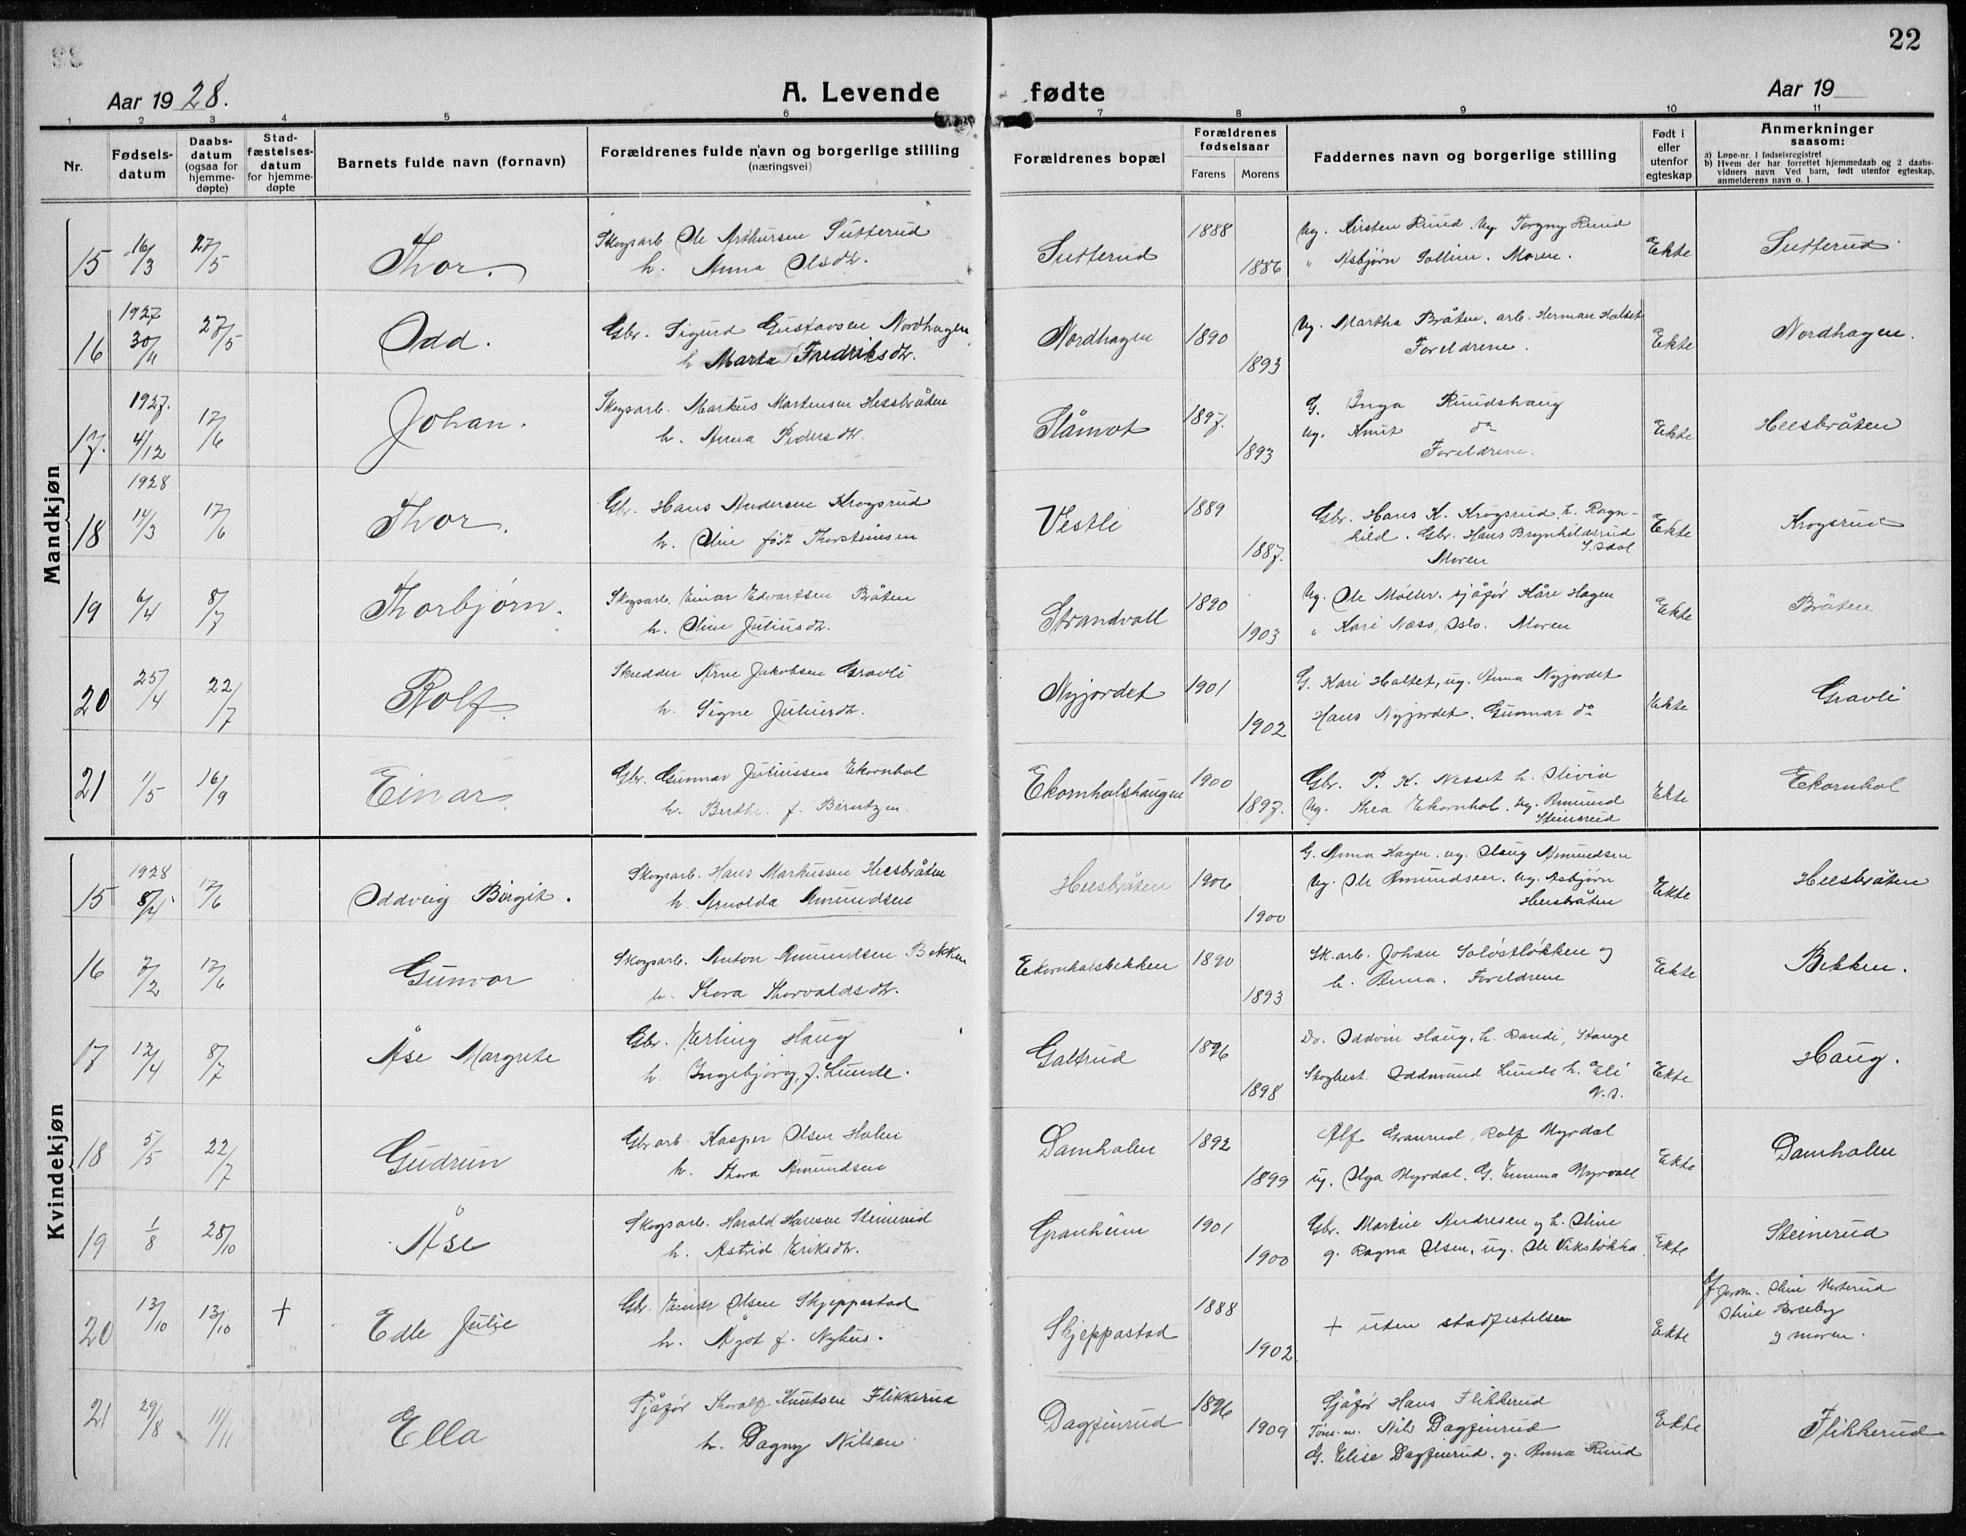 22
Aar 1928.
A. Levende
fødte
Aar 19
1 2 3 4 5 6 7 8 9 10 11
Nr.
Fødsels-
datum
Daabs-
datum
(ogsaa for
hjemme-
døpte)
Stad-
fæstelses-
datum
for hjemme-
døpte
Barnets fulde navn (fornavn)
Forældrenes fulde navn og borgerlige stilling
(næringsvei)
Forældrenes bopæl
Forældrenes
fødselsaar
Farens Morens
Faddernes navn og borgerlige stilling
Født i
eller
utenfor
egteskap
Anmerkninger
saasom:
a) Løpe-nr. i fødselsregistret
b) Hvem der har forrettet hjemmedaab og 2 daabs-
vidners navn Ved barn, født utenfor egteskap,
anmelderens navn o. l
Mandkjøn
15 16/3 27/5 Thor.
Skogsarb. Ole Arthursen Sutterud
h. Anna Olsdtr.
Sutterud 1888 1886
Ug. Kirsten Ruud. Ug Torgny Ruud
" Asbjørn Sollien. Moren.
Ekte Sutterud
16 1927 30/11 27/5 Odd.
Gbr. Sigurd Gustavsen Nordhagen
h Marta Fredriksdtr.
Nordhagen 1890 1893
Ug. Martha Bråten. arb. Herman Haltet
Foreldrene.
Ekte Nordhagen.
17. 1927. 4/12 17/6 Johan.
Skogsarb. Markus Martinsen Heesbråten
h. Anna Pedersdtr.
Slåmot 1897. 1893
G. Inga Ruudshaug
ug. Knut do
Foreldrene.
Ekte Heesbråten
18 1928 14/3 17/6 Thor.
Gbr. Hans Andersen Krogsrud
h. Oline født Thorsteinsen
Vestli 1889 1887.
Gbr. Hans K. Krogsrud h. Ragn-
hild. Gbr. Hans Brynhildsrud
S. Odal
Moren
Ekte Krogsrud
19 6/4 8/7 Thorbjørn.
Skogsarb. Einar Edvartsen Bråten
h. Oline Juliusdtr.
Strandvoll 1890 1903
Ug. Ole Møller. sjåfør Kåre Hagen
" Kari Næss, Oslo. Moren
Ekte Bråten
20 25/4 22/7 Rolf.
Skredder Arne Jakobsen Gravli
h. Signe Juliusdtr.
Nyjordet 1901 1902
G. Kari Haltet, ug. Anna Nyjordet
Hans Nyjordet. Gunnar do
Ekte Gravli
21 1/5 16/9 Einar.
Gbr. Gunnar Juliussen Ekornhol
h. Berthe. f. Berntzen.
Ekornholshaugen 1900 1897.
Gbr. P. K. Nesset h. Olivia
Ug. Thea Ekornhol. ug. Amund
Steinsrud
Ekte Ekornhol
Kvindekjøn
15 1928 8/4 17/6 Oddveig Birgit.
Skogsarb. Hans Markussen Heesbråten
h. Arnolda Amundsen
Heesbråten 1906 1900
G. Anna Hagen. ug. Olaug Amundsen
Ug. Ole Amundsen. ug. Asbjørn
Heesbråten
Ekte Heesbråten
16 7/2 17/6 Gunvor
Skogsarb. Anton Amundsen Bekken
h. Thora Thorvaldsdtr.
Ekornholsbekken 1890 1893
Sk.arb. Johan Soløstløkken og
h. Anna. Foreldrene
Ekte Bekken.
17 12/4 8/7 Åse Margrete
Gbr. Erling Haug
h. Ingebjørg, f. Lunde.
Galtrud 1896 1898
Dr. Oddvin Haug, h. Randi, Stange
Skogbest. Oddmund Lunde h. Eli
V.s.
Ekte Haug.
18 5/5 22/7 Gudrun
Gbrarb. Kasper Olsen Holen
h. Thora Amundsen
Damholen 1892 1899
Alf Granrud, Rolf Myrdal
ug. Olga Myrdal. G. Emma Myrvoll
Ekte Damholen
19 1/8 28/10 Åse
Skogsarb. Harald Hansen Steinerud
h. Astrid Eriksdtr.
Granheim 1901 1900
Gbr. Martin Andresen og h. Oline
g. Ragna Olsen, ug. Ole Viksløkka
Ekte Steinerud
20 13/10 13/10 + Edle Julie
Gbr. Einar Olsen Skjeppastad
h. Ågot f. Nyhus.
Skjeppastad 1888 1902
+ uten stadfestelse
Ekte
af Jordm. Oline
Oline
og moren.
21 29/8 11/11 Ella
Sjåfør Thoralf Knutsen Flikkerud
h. Dagny Nilsen
Dagfinrud 1896 1909
Sjåfør Hans Flikkerud
Tøm.m. Nils Dagfinrud
G. Elise Dagfinrud. g. Anna Ruud
Ekte Flikkerud